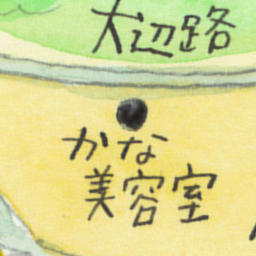 大辺路
かな
美容室